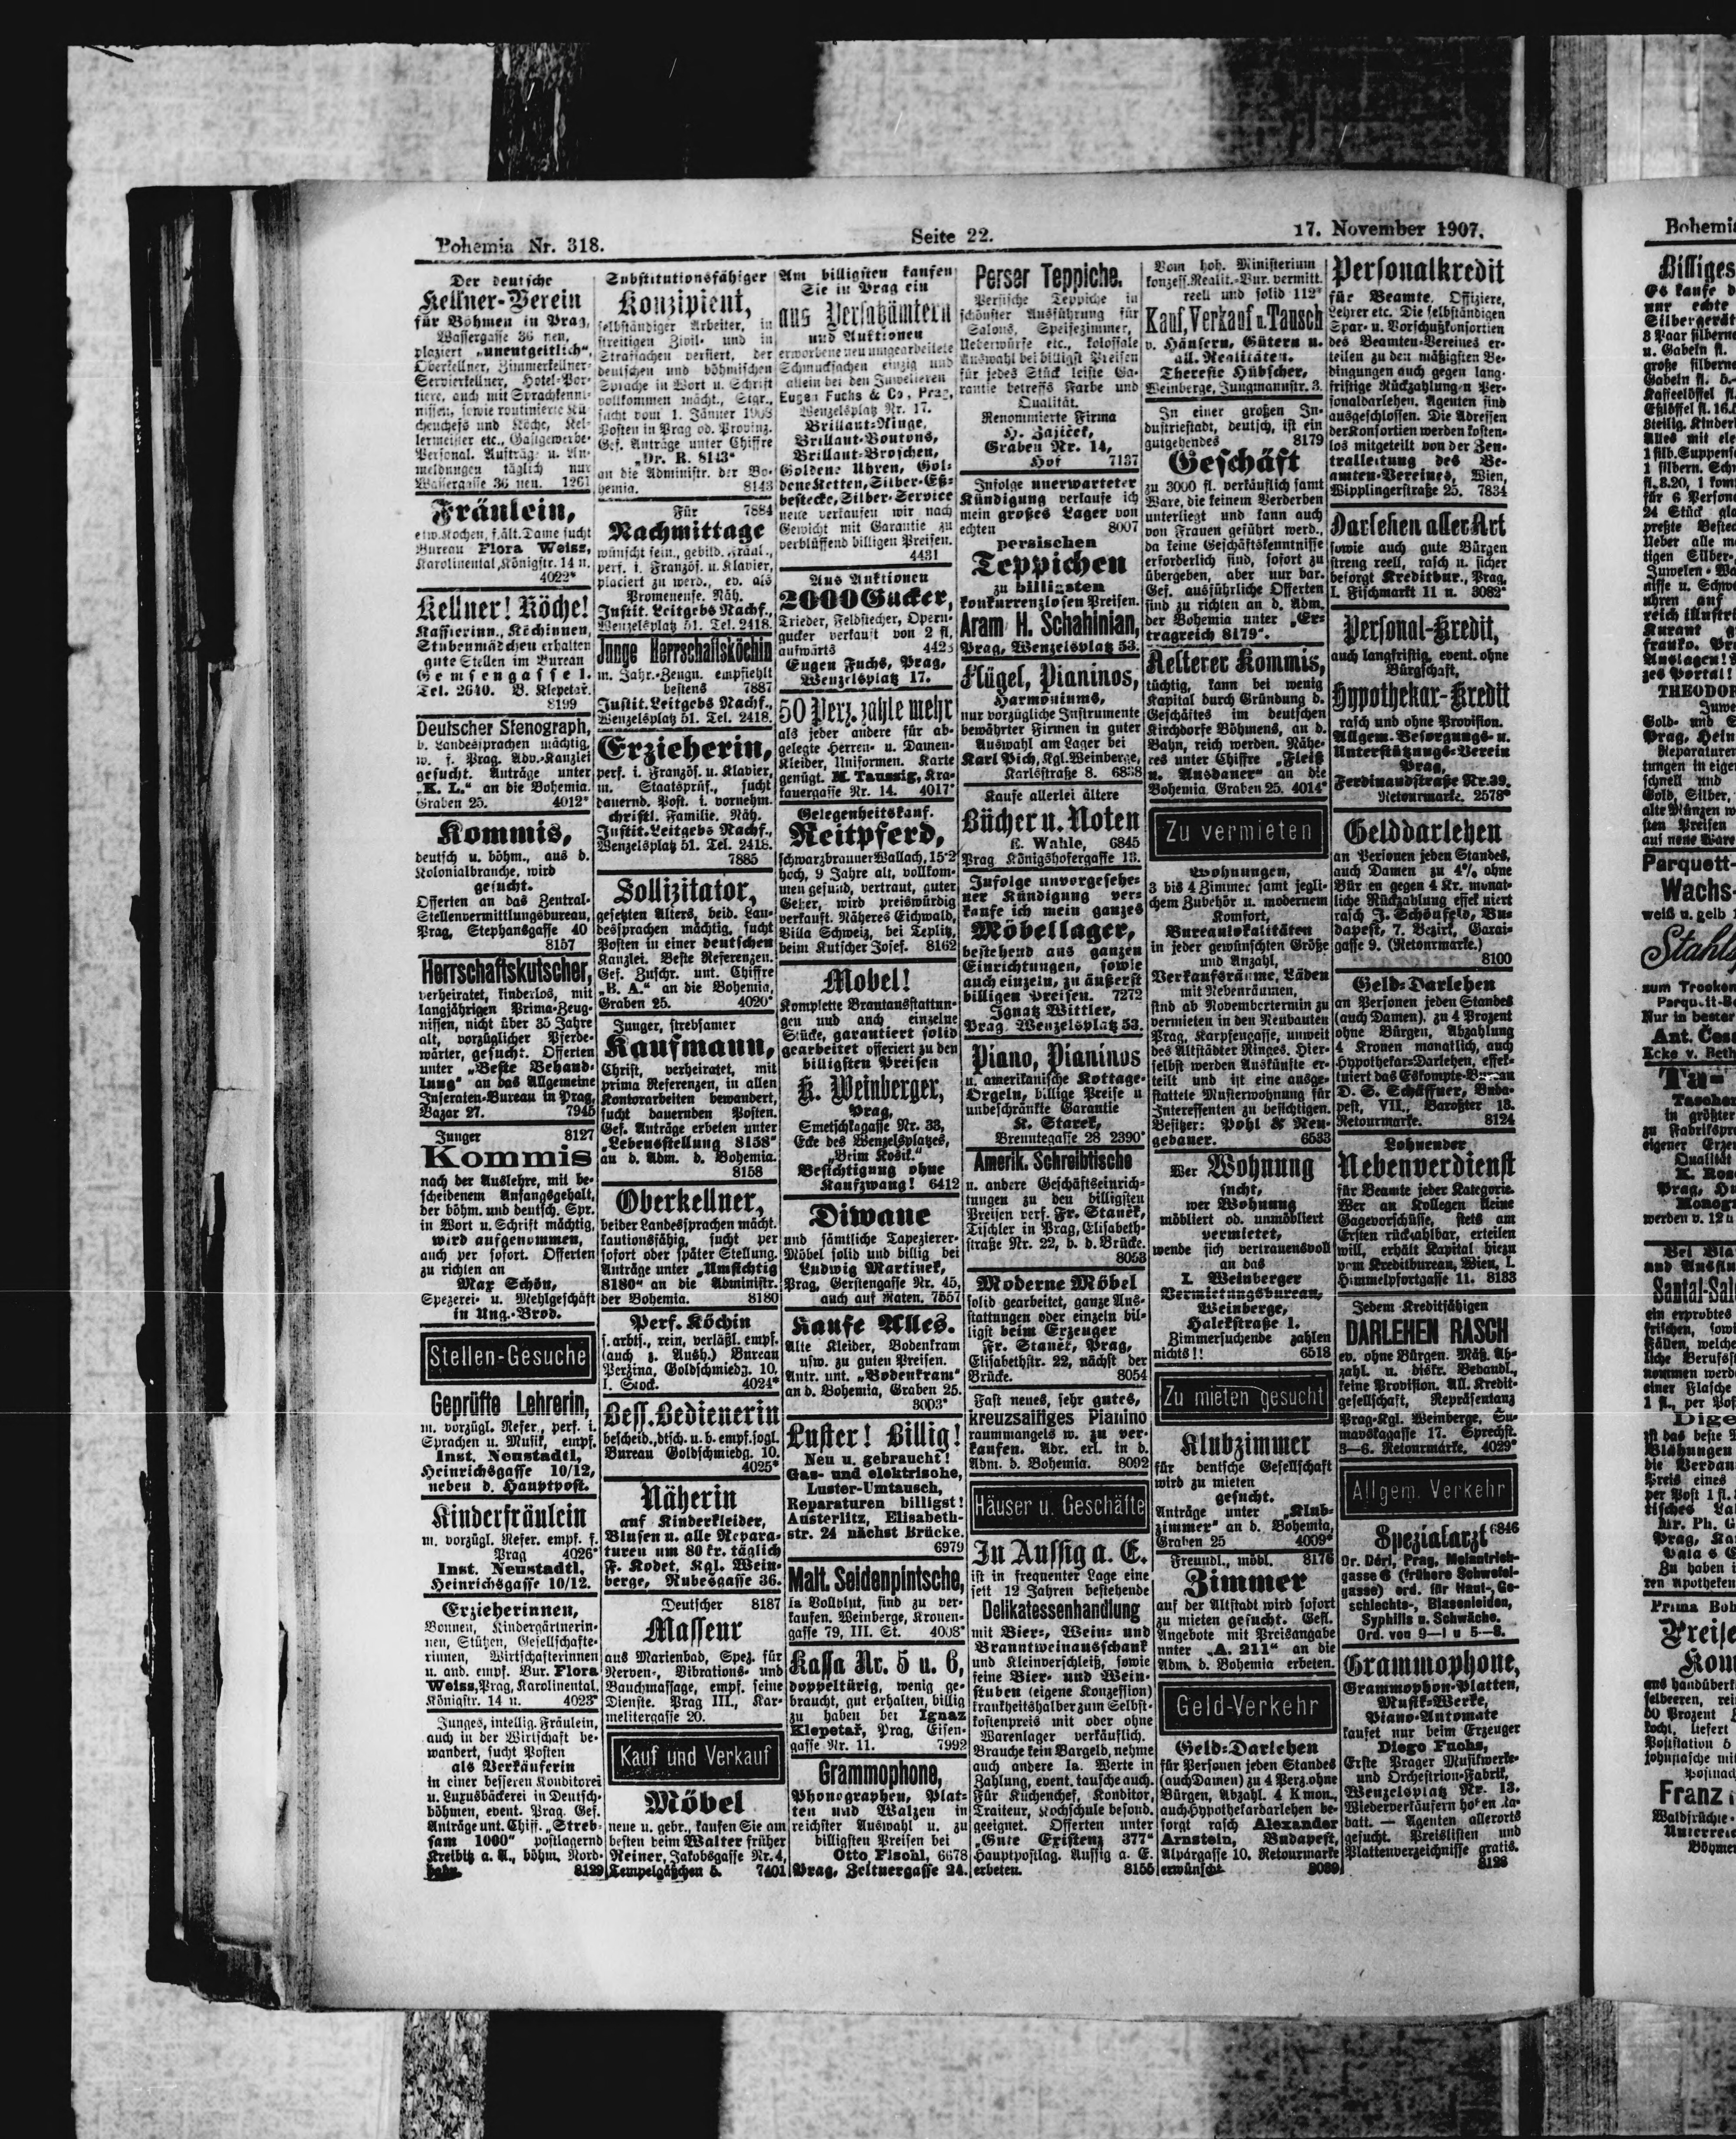 Bohemia Nr. 318.
Seite 22.
17. November 1907.
Der deutsche
Kellner-Verein
für Böhmen in Prag,
Wassergasse 36 neu,
plaziert „unentgeltlich“,
Oberkellner, Zimmerkellner-
Servierkellner, Hotel-Por-
tiere, auch mit Sprachkennt-
nissen, sowie routinierte Kü-
chenchefs und Köche, Kel-
lermeister etc., Gastgewerbe-
Personal. Aufträge u. An-
meldungen täglich nur
Wassergasse 36 neu. 1261
Fräulein,
etw. Kochen, f. ält. Dame sucht
Bureau Flora Weiss,
Karolinental, Königstr. 14 n.
4022*
Kellner! Köche!
Kassierinn., Köchinnen,
Stubenmädchen erhalten
gute Stellen im Bureau
Gemsengasse 1.
Tel. 2640. B. Klepetař.
8199
Deutscher Stenograph,
b. Landessprachen mächtig,
w. f. Prag. Adv.-Kanzlei
gesucht. Anträge unter
„K. L.“ an die Bohemia.
Graben 25. 4012*
Kommis,
deutsch u. böhm., aus d.
Kolonialbranche, wird
gesucht.
Offerten an das Zentral-
Stellenvermittlungsbureau,
Prag, Stephansgasse 40
8157
Herrschaftskutscher,
verheiratet, kinderlos, mit
langjährigen Prima-Zeug-
nissen, nicht über 35 Jahre
alt, vorzüglicher Pferde-
wärter, gesucht. Offerten
unter „Beste Behand-
lung“ an das Allgemeine
Inseraten-Bureau in Prag,
Bazar 27. 7945
Junger 8127
Kommis
nach der Auslehre, mit be-
scheidenem Anfangsgehalt,
der böhm. und deutsch. Spr.
in Wort u. Schrift mächtig,
wird aufgenommen,
auch per sofort. Offerten
zu richten an
Max Schön,
Spezerei- u. Mehlgeschäft
in Ung.-Brod.
Stellen-Gesuche
Geprüfte Lehrerin,
m. vorzügl. Refer., perf. i.
Sprachen u. Musik, empf.
Inst. Neustadtl,
Heinrichsgasse 10/12,
neben d. Hauptpost.
Kinderfräulein
m. vorzügl. Refer. empf. f.
Prag 4026*
Inst. Neustadtl,
Heinrichsgasse 10/12.
Erzieherinnen,
Bonnen, Kindergärtnerin-
nen, Stützen, Gesellschafte-
rinnen, Wirtschafterinnen
u. and. empf. Bur. Flora
Weiss, Prag, Karolinental,
Königstr. 14 n. 4023*
Junges, intellig. Fräulein,
auch in der Wirtschaft be-
wandert, sucht Posten
als Verkäuferin
in einer besseren Konditorei
u. Luxusbäckerei in Deutsch-
böhmen, event. Prag. Gef.
Anträge unt. Chiff. „Streb-
sam 1000“ postlagernd
Kreibitz a. A., böhm. Nord-
bahn. 8129
Substitutionsfähiger
Konzipient,
selbständiger Arbeiter, in
streitigen Zivil- und in
Strafsachen versiert, der
deutschen und böhmischen
Sprache in Wort u. Schrift
vollkommen mächt., Stgr.,
sucht vom 1. Jänner 1908
Posten in Prag od. Provinz.
Gef. Anträge unter Chiffre
„Dr. R. 8143“
an die Administr. der Bo-
hemia. 8143
Für 7884
Nachmittage
wünscht fein., gebild. Fräul.,
perf. i. Französ. u. Klavier,
placiert zu werd., ev. als
Promeneuse. Näh.
Instit. Leitgebs Nachf.,
Wenzelsplatz 51. Tel. 2418.
Junge Herrschaftsköchin
m. Jahr.-Zeugn. empfiehlt
bestens 7887
Instit. Leitgebs Nachf.,
Wenzelsplatz 51. Tel. 2418.
Erzieherin,
perf. i. Französ. u. Klavier,
m. Staatsprüf., sucht
dauernd. Post. i. vornehm.
christl. Familie. Näh.
Instit. Leitgebs Nachf.,
Wenzelsplatz 51. Tel. 2418.
7885
Sollizitator,
gesetzten Alters, beid. Lan-
dessprachen mächtig, sucht
Posten in einer deutschen
Kanzlei. Beste Referenzen.
Gef. Zuschr. unt. Chiffre
„B. A.“ an die Bohemia,
Graben 25. 4020*
Junger, strebsamer
Kaufmann,
Christ, verheiratet, mit
prima Referenzen, in allen
Kontorarbeiten bewandert,
sucht dauernden Posten.
Gef. Anträge erbeten unter
„Lebensstellung 8158“
an d. Adm. d. Bohemia.
8158
Oberkellner,
beider Landessprachen mächt.
kautionsfähig, sucht per
sofort oder später Stellung.
Anträge unter „Umsichtig
8180“ an die Administr.
der Bohemia. 8180
Perf. Köchin
s. arbts., rein, verläßl. empf.
(auch z. Aush.) Bureau
Perzina, Goldschmiedg. 10.
I. Stock. 4024*
Bess. Bedienerin
bescheid., dtsch. u. b. empf. sogl.
Bureau Goldschmiedg. 10.
4025*
Näherin
auf Kinderkleider,
Blusen u. alle Repara-
turen um 80 kr. täglich
F. Kodet, Kgl. Wein-
berge, Rubesgasse 36.
Deutscher 8187
Masseur
aus Marienbad, Spez. für
Nerven-, Vibrations- und
Bauchmassage, empf. seine
Dienste. Prag III., Kar-
melitergasse 20.
Kauf und Verkauf
Möbel
neue u. gebr., kaufen Sie am
besten beim Walter früher
Reiner, Jakobsgasse Nr. 4,
Tempelgäßchen 5. 7401
Am billigsten kaufen
Sie in Prag ein
aus Versatzämtern
und Auktionen
erworbene neu umgearbeitete
Schmucksachen einzig und
allein bei den Juwelieren
Eugen Fuchs & Co, Prag,
Wenzelsplatz Nr. 17.
Brillant-Ringe,
Brillant-Boutons,
Brillant-Broschen,
Goldene Uhren, Gol-
dene Ketten, Silber-Eß-
bestecke, Silber-Service
neue verkaufen wir nach
Gewicht mit Garantie zu
verblüffend billigen Preisen.
4431
Aus Auktionen
2000 Gucker,
Trieder, Feldstecher, Opern-
gucker verkauft von 2 fl.
aufwärts
Eugen Fuchs, Prag,
Wenzelsplatz 17.
50 Perz. zahle mehr
als jeder andere für ab-
gelegte Herren- u. Damen-
Kleider, Uniformen. Karte
genügt. M. Taussig, Kra-
kauergasse Nr. 14. 4017*
Gelegenheitskauf.
Reitpferd,
schwarzbrauner Wallach, 15·2
hoch, 9 Jahre alt, vollkom-
men gesund, vertraut, guter
Geher, wird preiswürdig
verkauft. Näheres Eichwald,
Villa Schweiz, bei Teplitz,
beim Kutscher Josef. 8162
Möbel!
Komplette Brautausstattun-
gen und auch einzelne
Stücke, garantiert solid
gearbeitet offeriert zu den
billigsten Preisen
K. Weinberger,
Prag,
Smetschkagasse Nr. 33,
Ecke des Wenzelsplatzes,
„Beim Kosik.“
Besichtigung ohne
Kaufzwang! 6412
Diwane
und sämtliche Tapezierer-
Möbel solid und billig bei
Ludwig Martinek,
Prag, Gerstengasse Nr. 45,
auch auf Raten. 7557
Kaufe Alles.
Alte Kleider, Bodenkram
usw. zu guten Preisen.
Antr. unt. „Bodenkram“
an d. Bohemia, Graben 25.
8003*
Luster! Billig!
Neu u. gebraucht!
Gas- und elektrische,
Luster-Umtausch,
Reparaturen billigst!
Austerlitz, Elisabeth-
str. 24 nächst Brücke.
6979
Malt. Seidenpintsche,
Ia Vollblut, sind zu ver-
kaufen. Weinberge, Kronen-
gasse 79, III. St. 4008*
Kassa Nr. 5 u. 6,
doppeltürig, wenig ge-
braucht, gut erhalten, billig
zu haben bei Ignaz
Klepetař, Prag, Eisen-
gasse Nr. 11. 7992
Grammophone,
Phonographen, Plat-
ten und Walzen in
reichster Auswahl u. zu
billigsten Preisen bei
Otto Fischl, 6678
Prag, Zeltnergasse 24.
Perser Teppiche.
Persische Teppiche in
schönster Ausführung für
Salons, Speisezimmer,
Ueberwürfe etc., kolossale
Auswahl bei billigst Preisen
für jedes Stück leiste Ga-
rantie betreffs Farbe und
Qualität.
Renommierte Firma
H. Zajiček,
Graben Nr. 14,
Hof 7137
Infolge unerwarteter
Kündigung verkaufe ich
mein großes Lager von
echten 8007
persischen
Teppichen
zu billigsten
konkurrenzlosen Preisen.
Aram H. Schahinian,
Prag, Wenzelsplatz 53.
Flügel, Pianinos,
Harmoniums,
nur vorzügliche Instrumente
bewährter Firmen in guter
Auswahl am Lager bei
Karl Pich, Kgl. Weinberge,
Karlsstraße 8. 6838
Kaufe allerlei ältere
Bücher u. Noten
E. Wahle, 6845
Prag Königshofergasse 13.
Infolge unvorgesehe-
ner Kündigung ver-
kaufe ich mein ganzes
Möbellager,
bestehend aus ganzen
Einrichtungen, sowie
auch einzeln, zu äußerst
billigen Preisen. 7272
Ignatz Wittler,
Prag Wenzelsplatz 53.
Piano, Pianinos
u. amerikanische Kottage-
Orgeln, billige Preise u.
unbeschränkte Garantie
K. Starek,
Brenntegasse 28 2390*
Amerik. Schreibtische
u. andere Geschäftseinrich-
tungen zu den billigsten
Preisen verf. Fr. Stanek,
Tischler in Prag, Elisabeth-
straße Nr. 22, b. d. Brücke.
8053
Moderne Möbel
solid gearbeitet, ganze Aus-
stattungen oder einzeln bil-
ligst beim Erzeuger
Fr. Stanek, Prag,
Elisabethstr. 22, nächst der
Brücke. 8054
Fast neues, sehr gutes,
kreuzsaitiges Pianino
raummangels w. zu ver-
kaufen. Adr. erl. in d.
Adm. d. Bohemia. 8092
Häuser u. Geschäfte
In Aussig a. E.
ist in frequenter Lage eine
seit 12 Jahren bestehende
Delikatessenhandlung
mit Bier-, Wein- und
Branntweinausschank
und Kleinverschleiß, sowie
feine Bier- und Wein-
stuben (eigene Konzession)
krankheitshalber zum Selbst-
kostenpreis mit oder ohne
Warenlager verkäuflich.
Brauche kein Bargeld, nehme
auch andere Ia. Werte in
Zahlung, event. tausche auch.
Für Küchenchef, Konditor,
Traiteur, Kochschule besond.
geeignet. Offerten unter
„Gute Existenz 377“
Hauptpostlag. Aussig a. E.
erbeten. 8155
Vom hoh. Ministerium
konzess. Realit.-Bur. vermitt.
reell und solid 112*
Kauf, Verkauf u. Tausch
v. Häusern, Gütern u.
all. Realitäten.
Therese Hübscher,
Weinberge, Jungmannstr. 3.
In einer großen In-
dustriestadt, deutsch, ist ein
gutgehendes 8179
Geschäft
zu 3000 fl. verkäuflich samt
Ware, die keinem Verderben
unterliegt und kann auch
von Frauen geführt werd.,
da keine Geschäftskenntnisse
erforderlich sind, sofort zu
übergeben, aber nur bar.
Gef. ausführliche Offerten
sind zu richten an d. Adm.
der Bohemia unter „Er-
tragreich 8179“.
Aelterer Kommis,
tüchtig, kann bei wenig
Kapital durch Gründung d.
Geschäftes im deutschen
Kirchdorfe Böhmens, an d.
Bahn, reich werden. Nähe-
res unter Chiffre „Fleiß
u. Ausdauer“ an die
Bohemia Graben 25. 4014*
Zu vermieten
Wohnungen,
3 bis 4 Zimmer samt jegli-
chem Zubehör u. modernem
Komfort,
Bureaulokalitäten
in jeder gewünschten Größe
und Anzahl,
Verkaufsräume, Läden
mit Nebenräumen,
sind ab Novembertermin zu
vermieten in den Neubauten
Prag, Karpfengasse, unweit
des Altstädter Ringes. Hier-
selbst werden Auskünfte er-
teilt und ist eine ausge-
stattete Musterwohnung für
Interessenten zu besichtigen.
Besitzer: Pohl & Neu-
gebauer. 6533
Wer Wohnung
sucht,
wer Wohnung
möbliert od. unmöbliert
vermietet,
wende sich vertrauensvoll
an das
I. Weinberger
Vermietungsbureau,
Weinberge,
Halekstraße 1.
Zimmersuchende zahlen
nichts!! 6518
Zu mieten gesucht
Klubzimmer
für deutsche Gesellschaft
wird zu mieten
gesucht.
Anträge unter „Klub-
zimmer“ an d. Bohemia,
Graben 25 4009*
Freundl., möbl. 8176
Zimmer
auf der Altstadt wird sofort
zu mieten gesucht. Gefl.
Angebote mit Preisangabe
unter „A. 211“ an die
Adm. d. Bohemia erbeten.
Geld-Verkehr
Geld-Darlehen
für Personen jeden Standes
(auch Damen) zu 4 Perz. ohne
Bürgen, Abzahl. 4 K mon.,
auch Hypothekardarlehen be-
sorgt rasch Alexander
Arnstein, Budapest,
Alpárgasse 10. Retourmarke
erwünscht. 8089
Personalkredit
für Beamte, Offiziere,
Lehrer etc. Die selbständigen
Spar- u. Vorschußkonsortien
des Beamten-Vereines er-
teilen zu den mäßigsten Be-
dingungen auch gegen lang-
fristige Rückzahlungen Per-
sonaldarlehen. Agenten sind
ausgeschlossen. Die Adressen
der Konsortien werden kosten-
los mitgeteilt von der Zen-
tralleitung des Be-
amten-Vereines, Wien,
Wipplingerstraße 25. 7834
Darlehen aller Art
sowie auch gute Bürgen
streng reell, rasch u. sicher
besorgt Kreditbur., Prag,
I. Fischmarkt 11 n. 3082*
Personal-Kredit,
auch langfristig, event. ohne
Bürgschaft,
Hypothekar-Kredit
rasch und ohne Provision.
Allgem. Besorgungs- u.
Unterstützungs-Verein
Prag,
Ferdinandstraße Nr. 39.
Retourmarke. 2578*
Gelddarlehen
an Personen jeden Standes,
auch Damen zu 4% ohne
Bürgen gegen 4 Kr. monat-
liche Rückzahlung effektuiert
rasch J. Schönfeld, Bu-
dapest, 7. Bezirk, Garai-
gasse 9. (Retourmarke.)
8100
Geld-Darlehen
an Personen jeden Standes
(auch Damen), zu 4 Prozent
ohne Bürgen, Abzahlung
4 Kronen monatlich, auch
Hypothekar-Darlehen, effek-
tuiert das Eskompte-Bureau
D. S. Schäffner, Buda-
pest, VII., Baroßter 13.
Retourmarke. 8124
Lohnender
Nebenverdienst
für Beamte jeder Kategorie.
Wer an Kollegen kleine
Gagevorschüsse, stets am
Ersten rückzahlbar, erteilen
will, erhält Kapital hiezu
vom Kreditbureau, Wien, I.
Himmelpfortgasse 11. 8133
Jedem Kreditfähigen
DARLEHEN RASCH
ev. ohne Bürgen. Mäß. Ab-
zahl. u. diskr. Behandl.,
keine Provision. All. Kredit-
gesellschaft, Repräsentanz
Prag-Kgl. Weinberge, Su-
mavskagasse 17. Sprechst.
3—6. Retourmarke. 4029*
Allgem. Verkehr
Spezialarzt 6846
Dr. Dörl, Prag, Melantrich-
gasse 6 (frühere Schwefel-
gasse) ord. für Haut-, Ge-
schlechts-, Blasenleiden,
Syphilis u. Schwäche.
Ord. von 9—1 u 5—8.
Grammophone,
Grammophon-Platten,
Musik-Werke,
Piano-Automate
kaufet nur beim Erzeuger
Diego Fuchs,
Erste Prager Musikwerke-
und Orchestrion-Fabrik,
Wenzelsplatz Nr. 13.
Wiederverkäufern hohen Ra-
batt. — Agenten allerorts
gesucht. Preislisten und
Plattenverzeichnisse gratis.
8128
Bohemia
Billiges
Es kaufe
nur echte
Silbergerät
8 Paar silberne
u. Gabeln fl.
große silberne
Gabeln fl. 5.-
Kaffeelöffel fl.
Eßlöffel fl. 16.
8teilig. Kinder
Alles mit
1 silb. Suppens
1 silbern.
fl. 8.20, 1
für 6 Person
24 Stück
THEODOR
Gold- und
Prag, Hein
Reparaturen
schnell und
Gold, Silber,
alte Münzen
sten Preisen
auf neue Ware
Parquett-
Wachs-
weiß u. gelb
Stahls
zum Trocken
Nur in bester
Ant. Čes
Ecke v. Beth
Taschen
in größter
zu Fabrikspre
eigener Erzeu
Qualität
Prag,
Monogr
werden v. 12
Santal-Sal
ein erprobtes
Preis eines
Prag,
Zu haben
ren Apotheken
Prima
Preise
Franz
Waldfrüchte-